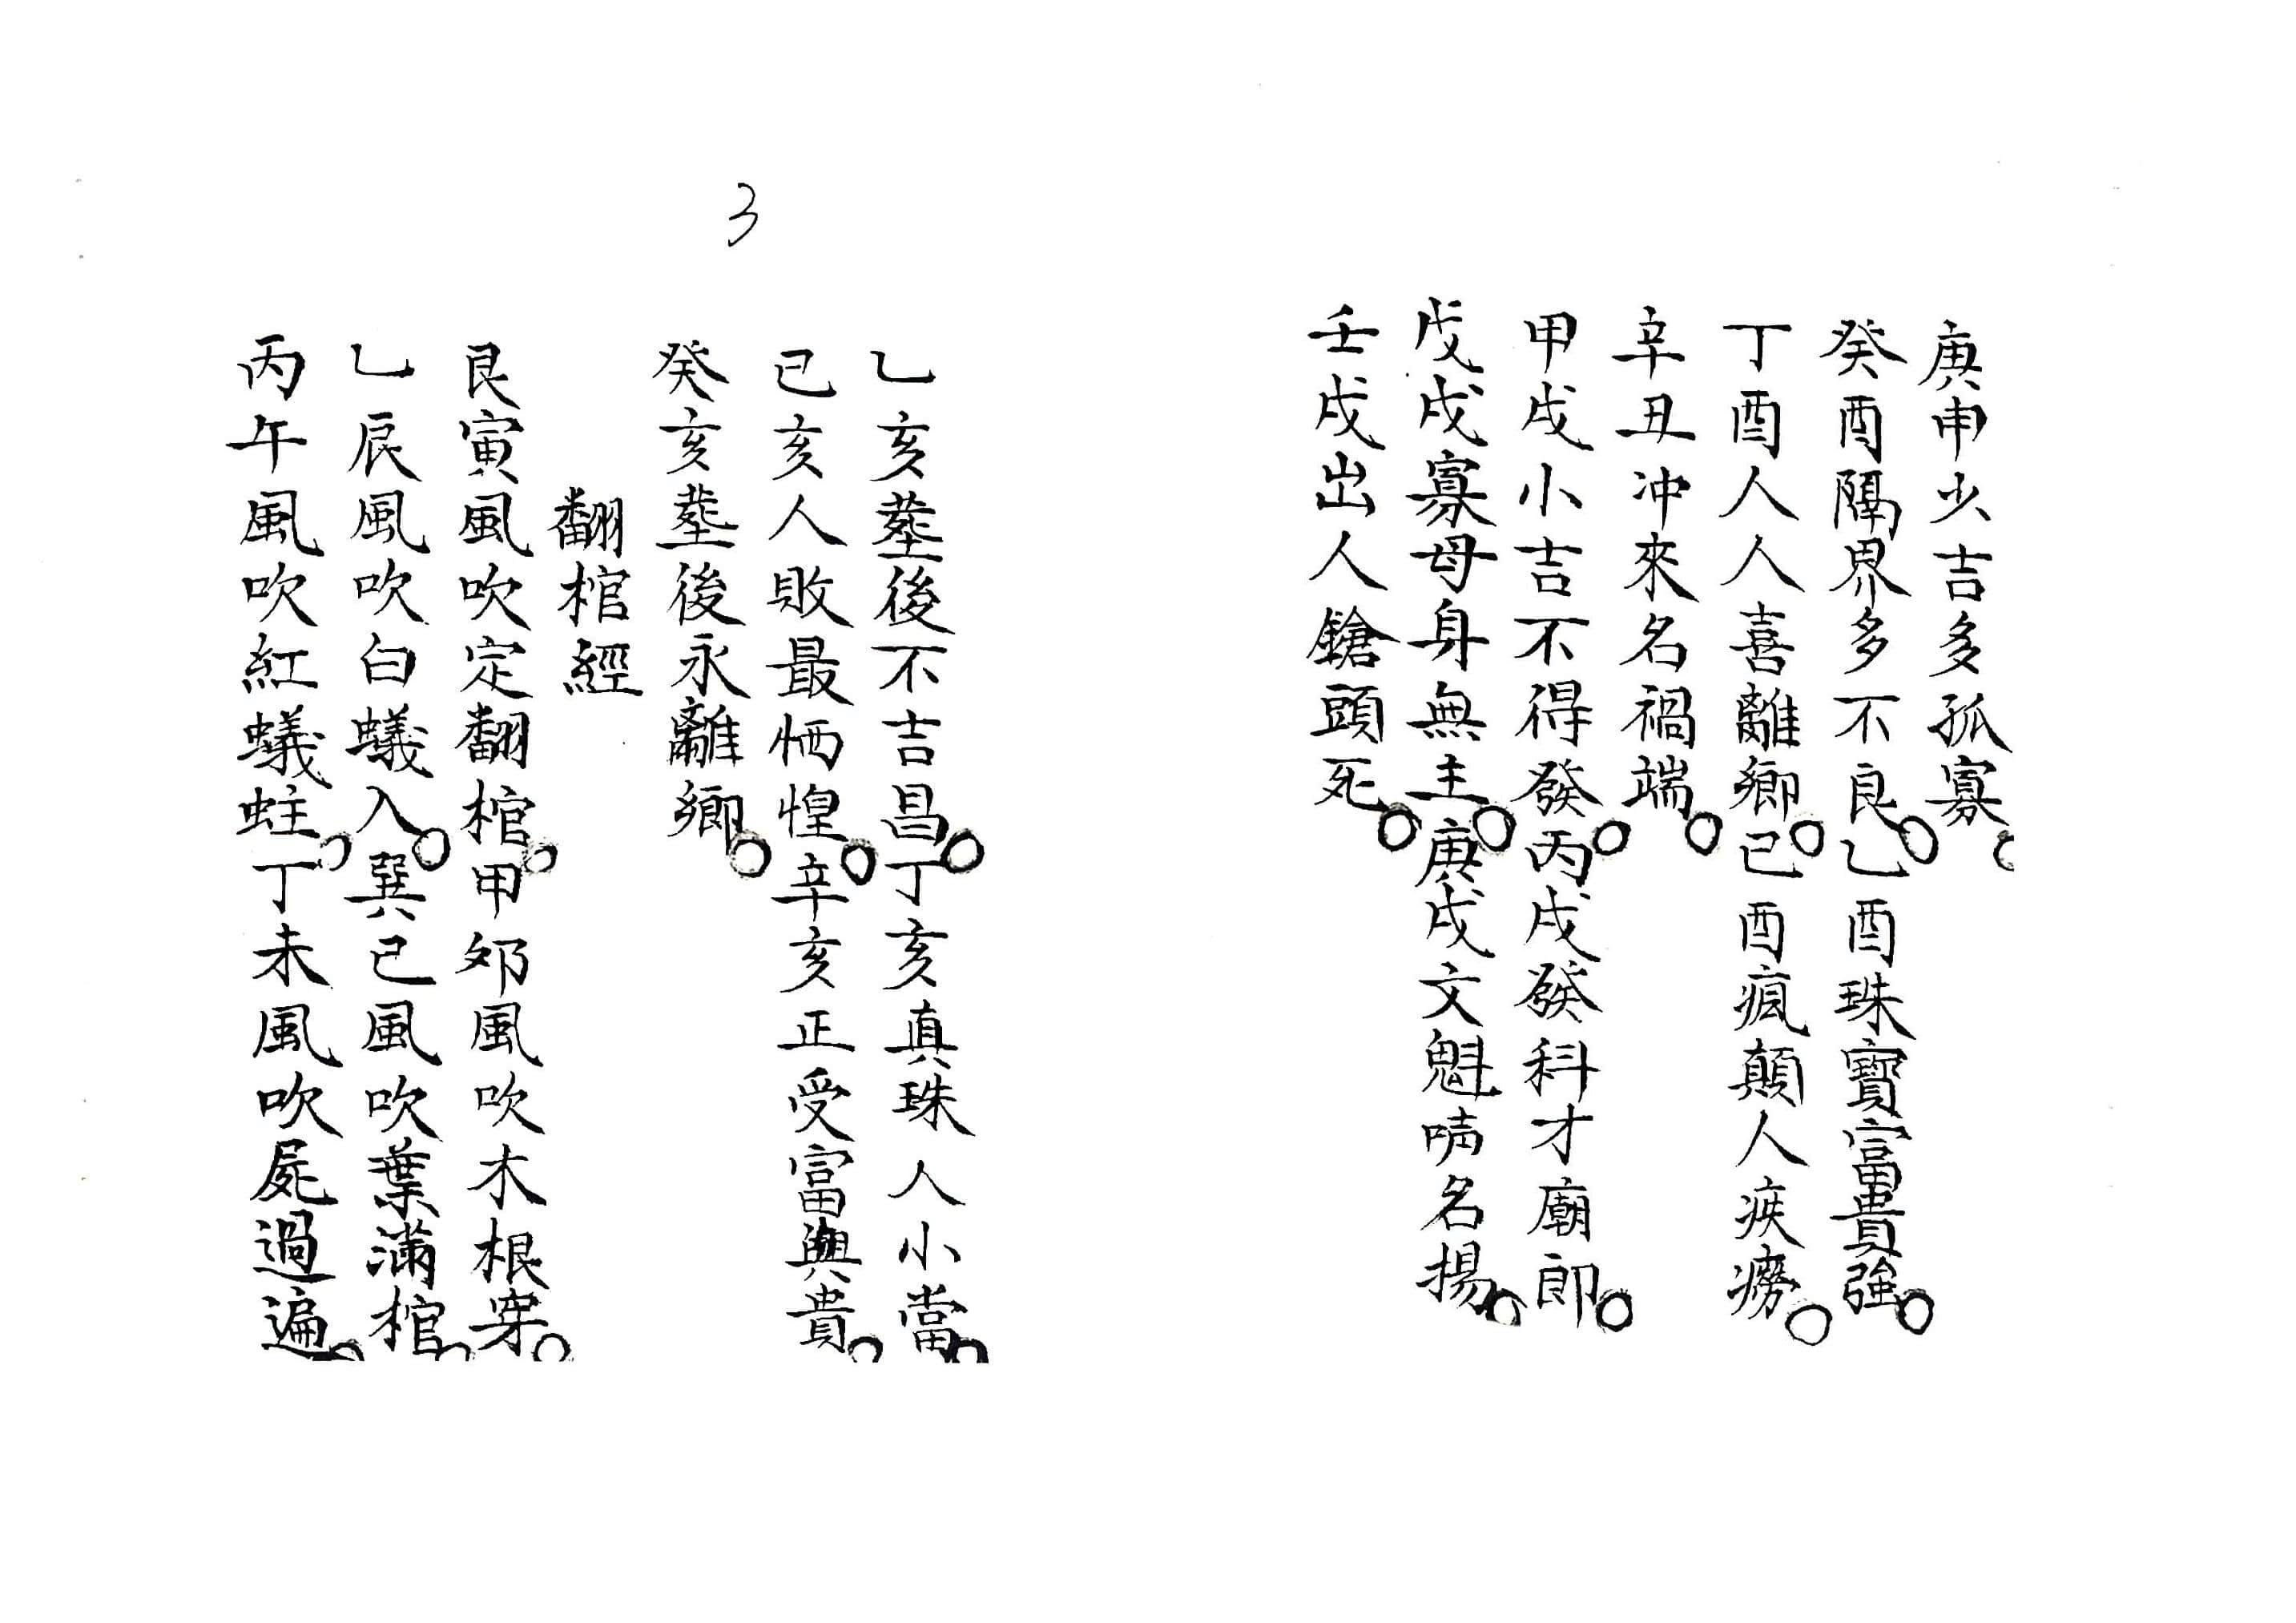 庚申少吉多孤寡○
癸酉隔界多不良○乙酉珠寶富貴強○
丁酉人人喜離鄉○已酉瘋顛人疾癆○
辛丑冲來名禍端○
甲戌小吉不得發○丙戌發科才廟郎○
戊戌寡母身無主○庚戌文魁 名揚○
壬戌出人鎗頭死○
3
乙亥塟後不吉昌○丁亥真珠人小當○
已亥人敗最恓惶○辛亥正受富與貴○
癸亥塟後永離鄉○
翻棺經
艮寅風吹定翻棺○甲卯風吹木根穿○
乙辰風吹白蟻入○巽已風吹葉滿棺○
丙午風吹紅蟻蛀○丁未風吹屍過遍○